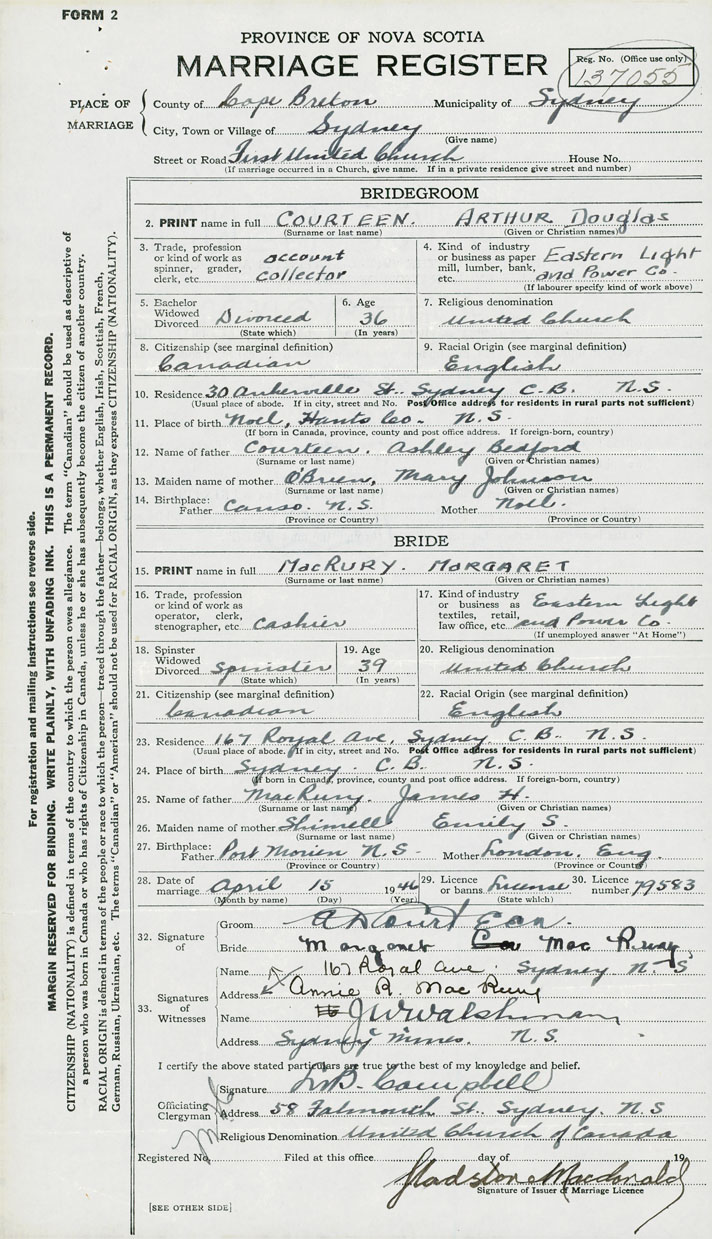 FORM 2
PROVINCE OF NOVA SCOTIA
MARRIAGE REGISTER
Reg. No. (Office use only)
137055
PLACE OF MARRIAGE
County of Cape Breton Municipality of Sydney
City, Town or Village of Sydney
(Give name)
Street or Road First United Church House No.
(If marriage occurred in a Church, give name. If in a private residence give street and number)
BRIDEGROOM
2. PRINT name in full COURTEEN. ARTHUR Douglas
(Surname or last name) (Given or Christian names)
3. Trade, profession or kind of work as spinner, grader, clerk, etc. account collector
4. Kind of industry or business as paper mill, lumber, bank, etc. Eastern Light and Power Co.
(If labourer specify kind of work above)
5. Bachelor Widowed Divorced Divorced
(State which)
6. Age 36
(In years)
7. Religious denomination United Church
8. Citizenship (see marginal definition) Canadian
9. Racial Origin (see marginal definition) English
10. Residence 30 St. Sydney C.B. N.S.
(Usual place of abode. If in city, street and No. Post Office address for residents in rural parts not sufficient)
11. Place of birth Noel, Hants Co. N.S.
(If born in Canada, province, county and post office address. If foreign-born, country)
12. Name of father Courteen. Ashley Bedford
(Surname or last name) (Given or Christian names)
13. Maiden name of mother O'Brien, Mary Johnson
(Surname or last name) (Given or Christian names)
14. Birthplace: Father Canso. N.S. Mother Noel.
(Province or Country) (Province or Country)
BRIDE
15. PRINT name in full MacRURY. MARGARET
(Surname or last name) (Given or Christian names)
16. Trade, profession or kind of work as operator, clerk, stenographer, etc. cashier
17. Kind of industry or business as textiles, retail, law office, etc. Eastern Light and Power Co.
(If unemployed answer "At Home")
18. Spinster Widowed Divorced Spinster
(State which)
19. Age 39
(In years)
20. Religious denomination United Church
21. Citizenship (see marginal definition) Canadian
22. Racial Origin (see marginal definition) English
23. Residence 167 Royal Ave, Sydney C.B. N.S.
(Usual place of abode. If in city, street and No. Post Office address for residents in rural parts not sufficient)
24. Place of birth Sydney. C.B. N.S.
(If born in Canada, province, county and post office address. If foreign-born, country)
25. Name of father MacRury. James H.
(Surname or last name) (Given or Christian names)
26. Maiden name of mother Emily S.
(Surname or last name) (Given or Christian names)
27. Birthplace: Father Port Morien N.S. Mother London, Eng.
(Province or Country) (Province or Country)
28. Date of marriage April 15 1946
(Month by name) (Day) (Year)
29. Licence or banns License
(State which)
30. Licence number 79583
32. Signature of
Groom A D Courteen.
Bride Margaret Mac Rury
33. Signatures of Witnesses
Name 167 Royal Ave. Sydney N.S
Address Annie R. Mac Rury
Name
Address Sydney Mines. N.S.
I certify the above stated particulars are true to the best of my knowledge and belief.
Officiating Clergyman
Signature Campbell
Address 58 Falmouth St. Sydney. N.S
Religious Denomination United Church of Canada
Registered No. Filed at this office day of 19
Gladston Macdonald
Signature of Issuer of Marriage Licence
[SEE OTHER SIDE]
For registration and mailing instructions see reverse side.
MARGIN RESERVED FOR BINDING. WRITE PLAINLY, WITH UNFADING INK. THIS IS A PERMANENT RECORD.
CITIZENSHIP (NATIONALITY) is defined in terms of the country to which the person owes allegiance. The term "Canadian" should be used as descriptive of
a person who was born in Canada or who has rights of Citizenship in Canada, unless he or she has subsequently become the citizen of another country.
RACIAL ORIGIN is defined in terms of the people or race to which the person—traced through the father—belongs, whether English, Irish, Scottish, French,
German, Russian, Ukrainian, etc. The terms "Canadian" or "American" should not be used for RACIAL ORIGIN, as they express CITIZENSHIP (NATIONALITY).